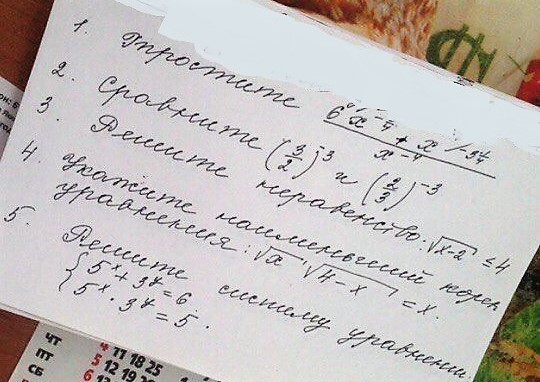 1. Упростите
2. Сравните (3/2)^-3 и (2/3)^-3
3. Решите неравенство: √x-2 ≤ 4
4. Укажите наименьший корень
уравнения: √x · √4-x = x.
5. Решите систему уравнений.
{5^x + 3^y = 6
{5^x · 3^y = 5.
ЧТ 4 11 18 25
ПТ 5 12 19 26
СБ 6 13